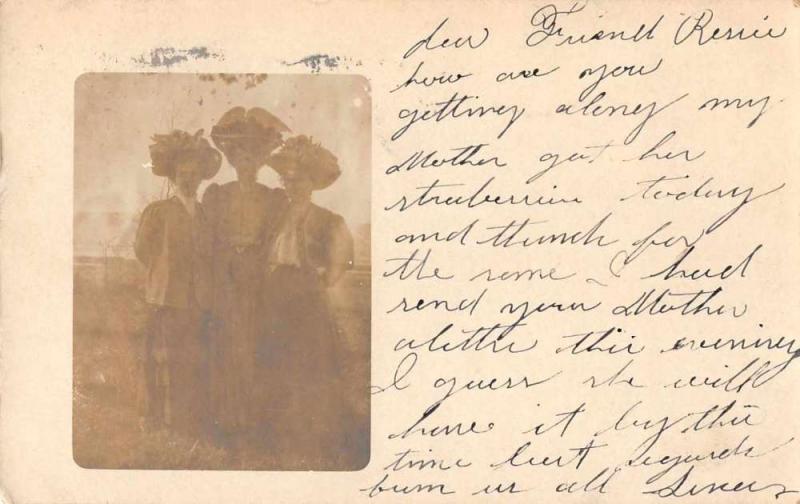 dear Friend Ressie
how are you
getting along my
Mother got her
struberries today
and thank for
the same I had
send your Mother
a letter this evening
I guess she will
have it by this
time best regards
from us all